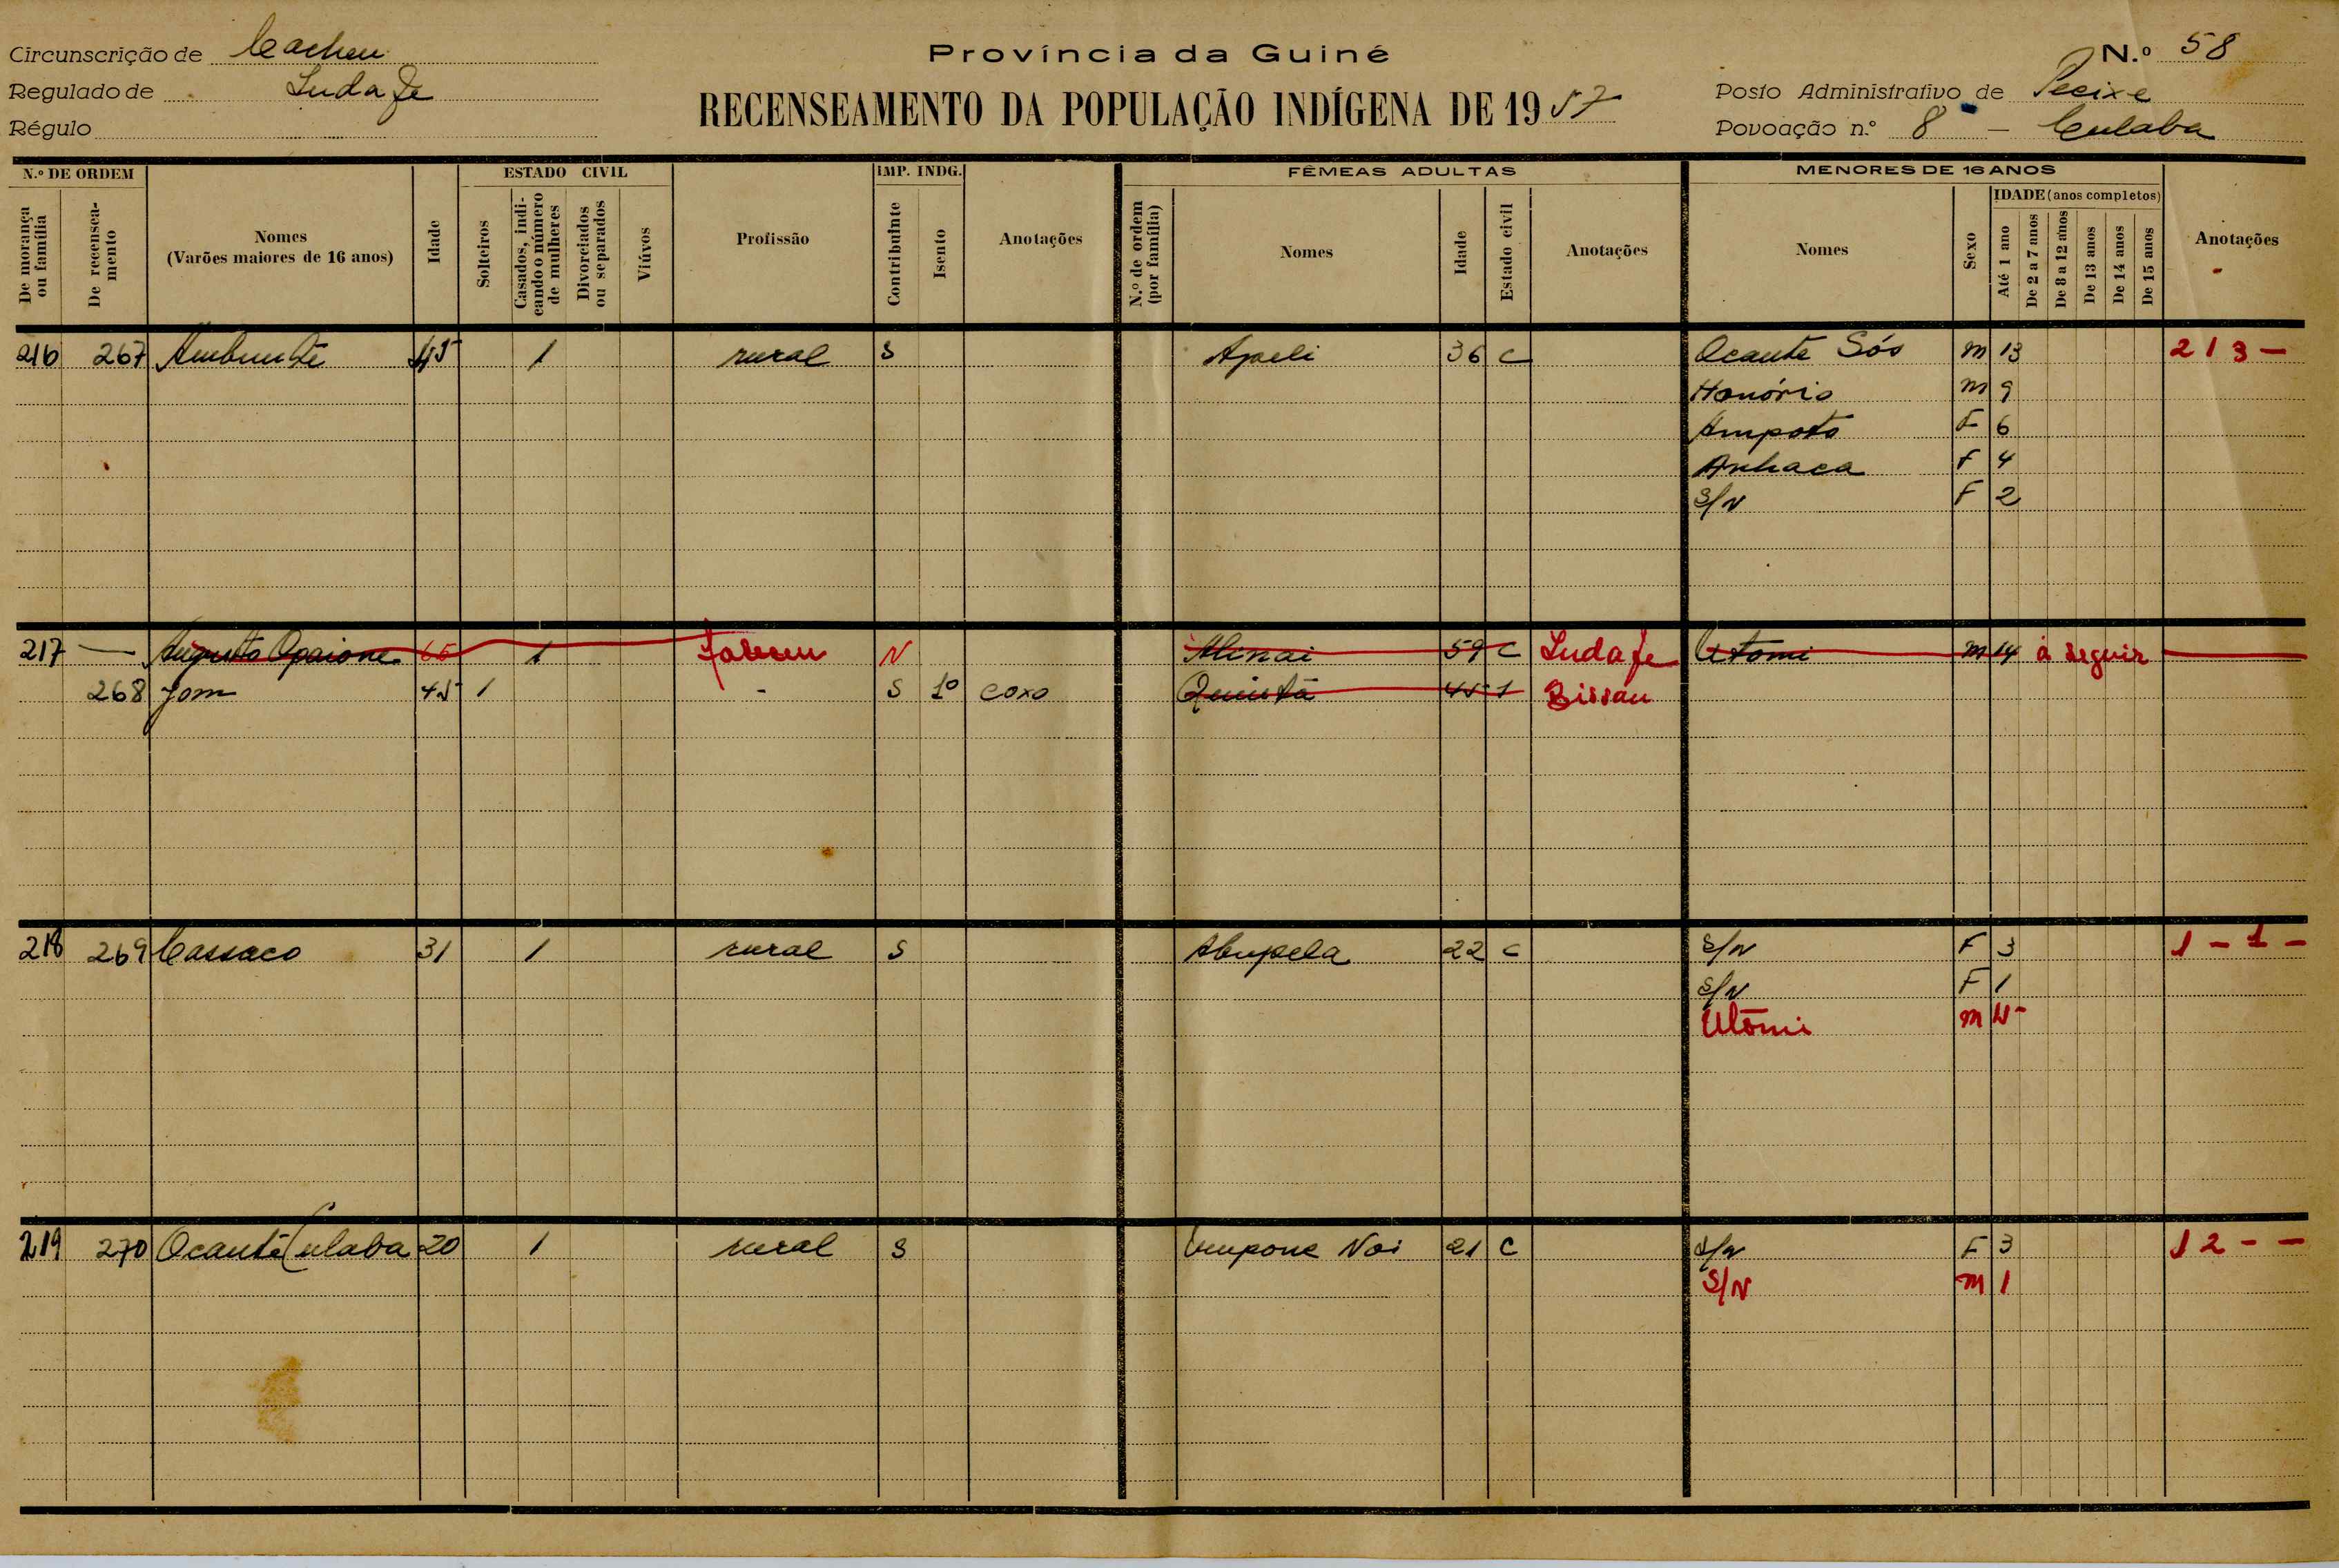 Circunscrição de Cacheu
Província da Guiné
N.º 58
Regulado de Luda fe
RECENSEAMENTO DA POPULAÇÃO INDÍGENA DE 1957
Posto Administrativo de Pecixe
Régulo
Povoação n.º 8 - Culaba
N.º DE ORDEM
De morança ou família
De recenseamento
Nomes
(Varões maiores de 16 anos)
Idade
ESTADO CIVIL
Solteiros
Casados, indicando o número de mulheres
Divorciados ou separados
Viúvos
Profissão
IMP. INDG.
Contribuinte
Isento
Anotações
FÊMEAS ADULTAS
N.º de ordem (por família)
Nomes
Idade
Estado civil
Anotações
MENORES DE 16 ANOS
Nomes
Sexo
IDADE (anos completos)
Até 1 ano
De 2 a 7 anos
De 8 a 12 anos
De 13 anos
De 14 anos
De 15 anos
Anotações
216 267 45 1 rural S Apeli 36 C Ocante Sós M 13 2 1 3 -
Honório M 9
Ampoto F 6
Anhaca F 4
S/N F 2
217 — Augusto Opaione 65 1 faleceu N Alinai 59 C Luda fe Utomi M 14 à seguir
268 Jom 45 1 - S 1º coxo Quintà 45 1 Bissau
218 269 Cassaco 31 1 rural S Abupela 22 C S/N F 3 1 - 1 -
S/N F 1
Utomi M
219 270 Ocantê Culaba 20 1 rural S Umpone Noi 21 C S/N F 3 1 2 - -
S/N M 1